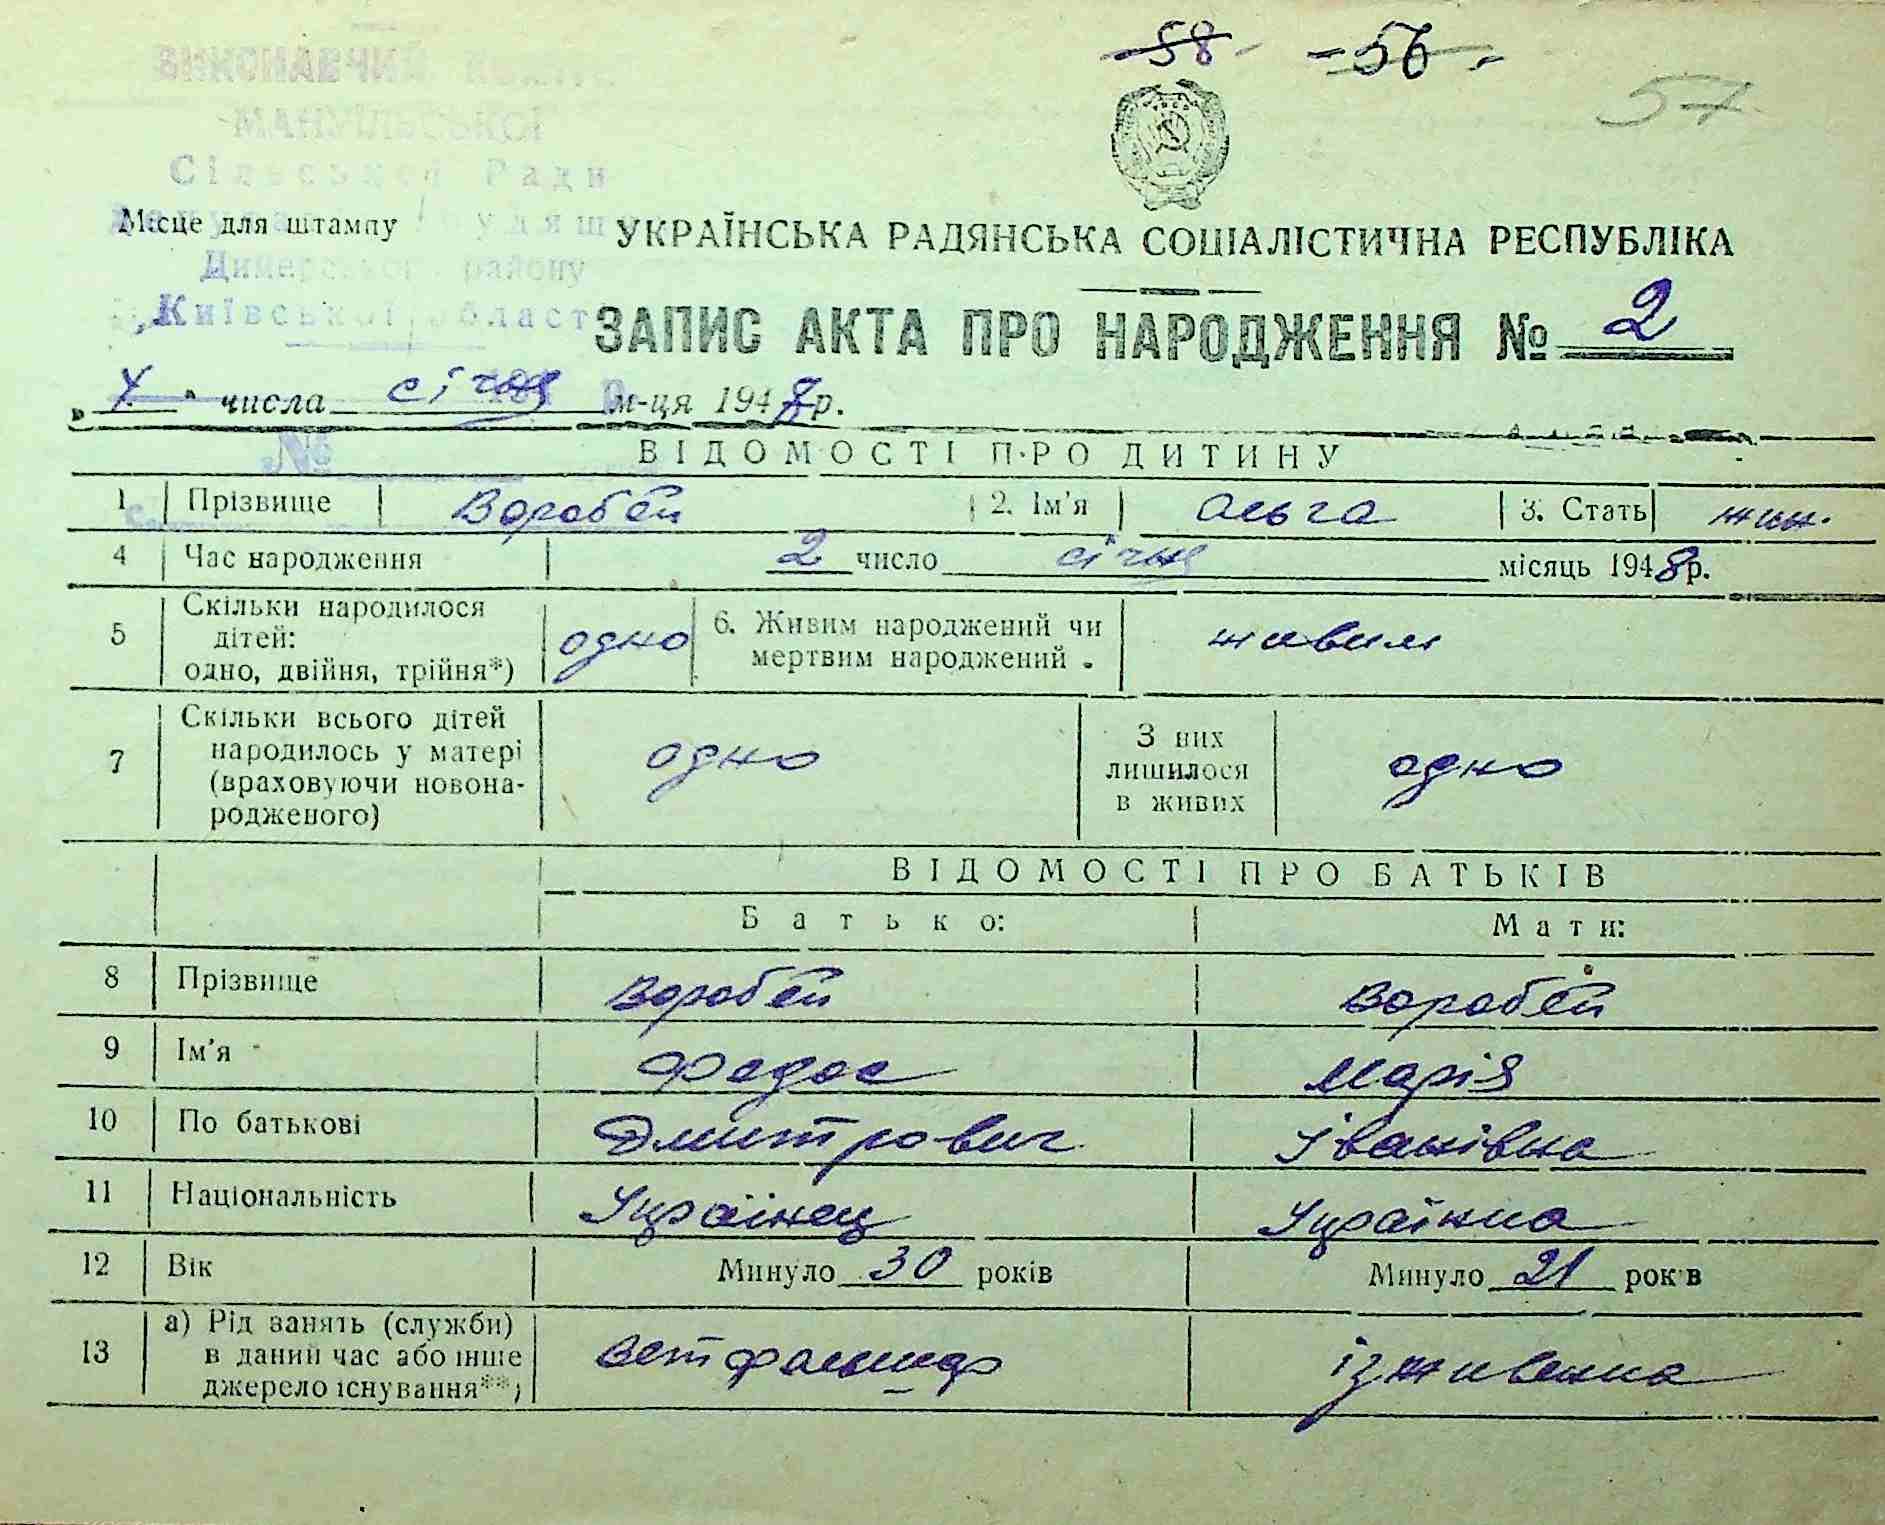 -58- -56-
57
ВИКОНАВЧИЙ
МАНУЇЛЬСЬКОЇ
Сільської Ради
Димерського району
Київської області
Місце для штампу
УКРАЇНСЬКА РАДЯНСЬКА СОЦІАЛІСТИЧНА РЕСПУБЛІКА
ЗАПИС АКТА ПРО НАРОДЖЕННЯ № 2
числа січня м-ця 1948 р.
№
ВІДОМОСТІ ПРО ДИТИНУ
1 Прізвище Воробей 2. Ім'я Ольга 3. Стать жін.
4 Час народження 2 число січня місяць 1948 р.
5 Скільки народилося дітей: одно, двійня, трійня*) одно 6. Живим народжений чи мертвим народжений. живим
7 Скільки всього дітей народилось у матері (враховуючи новонародженого) одно З них лишилося в живих одно
ВІДОМОСТІ ПРО БАТЬКІВ
Батько: Мати:
8 Прізвище Воробей Воробей
9 Ім'я Федос Марія
10 По батькові Дмитрович Іванівна
11 Національність Українец Українка
12 Вік Минуло 30 років Минуло 21 років
13 а) Рід занять (служби) в даний час або інше джерело існування**) ветфальшар іждивенка